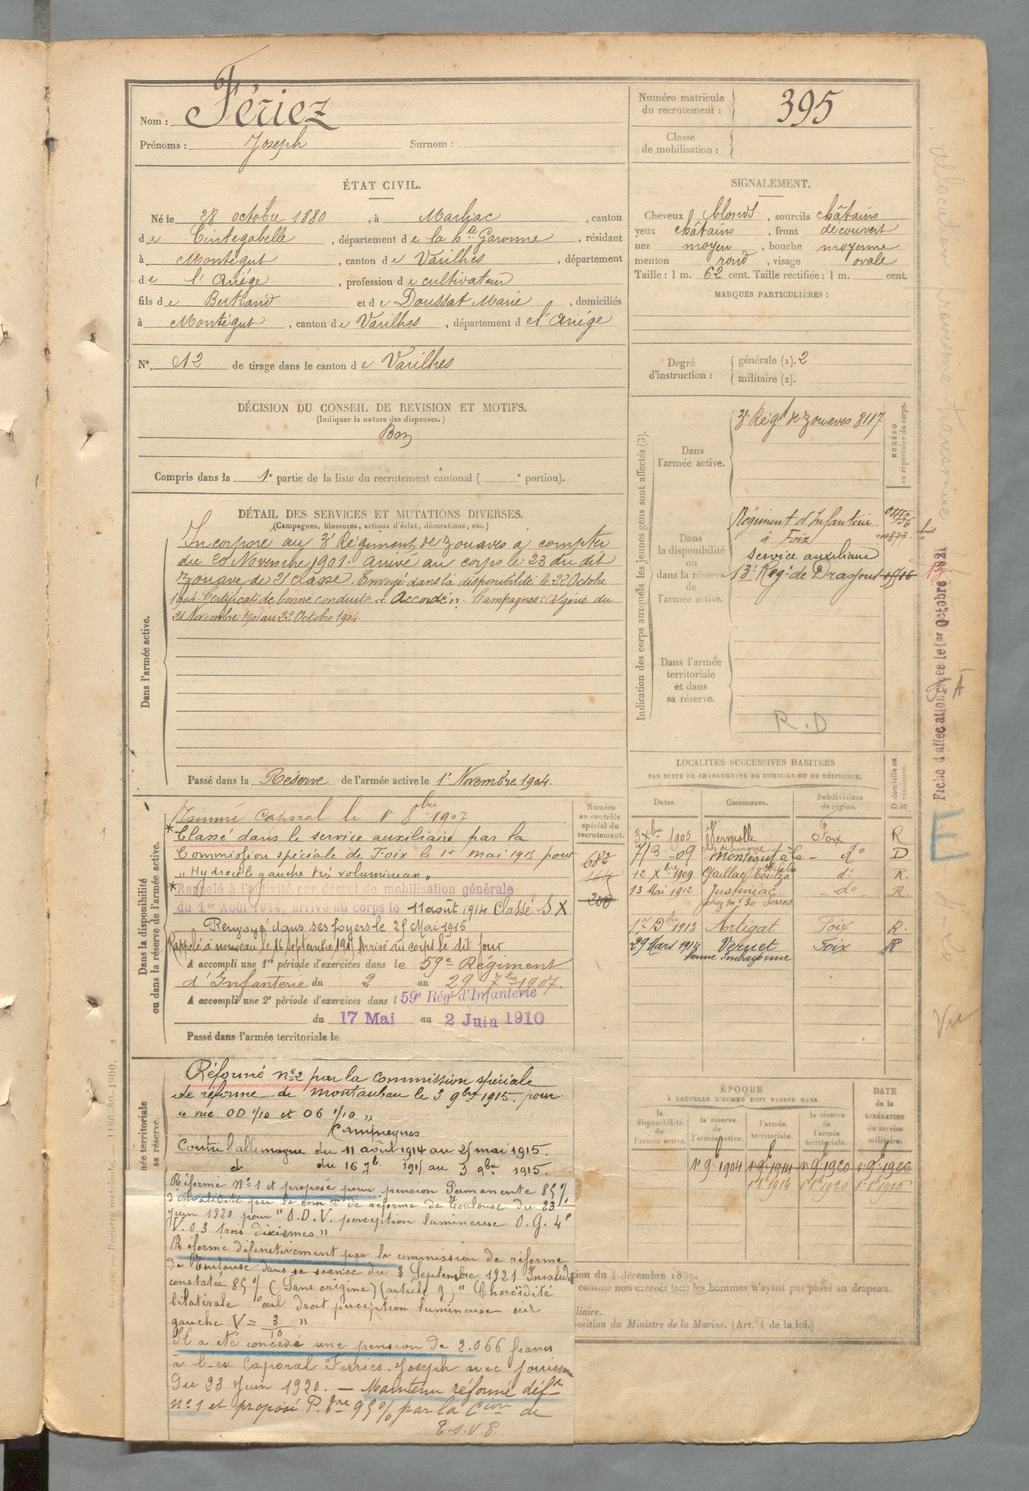 Nom : Fériez
Prénoms : Joseph Surnom :
Numéro matricule du recrutement : 395
Classe de mobilisation :
ÉTAT CIVIL.
Né le 28 octobre 1880, à Marliac, canton
de Cintegabelle, département de la hte Garonne, résidant
à Montégut, canton de Varilhes, département
de l'Ariége, profession de cultivateur
fils de Bertrand et de Doussat Marie, domiciliés
à Montégut, canton de Varilhes, département de l'Ariége
N° 12 de tirage dans le canton de Varilhes
SIGNALEMENT.
Cheveux blonds, sourcils châtains
yeux châtains, front découvert
nez moyen, bouche moyenne
menton rond, visage ovale
Taille : 1 m. 62 cent. Taille rectifiée : 1 m. cent.
MARQUES PARTICULIÈRES :
Degré d'instruction : générale (1). 2
militaire (2).
DÉCISION DU CONSEIL DE REVISION ET MOTIFS.
(Indiquer la nature des dispenses.)
Bon
Compris dans la 1e partie de la liste du recrutement cantonal ( e portion).
DÉTAIL DES SERVICES ET MUTATIONS DIVERSES.
(Campagnes, blessures, actions d'éclat, décorations, etc.)
Dans l'armée active.
Incorporé au 3e Régiment de Zouaves à compter
du 20 Novembre 1901. Arrivé au corps le 23 du dit
Zouave de 2e classe. Envoyé dans la disponibilité le 22 Octobre
1904. Certificat de bonne conduite "Accordé". Campagnes: Algérie du
21 Novembre 1901 au 22 Octobre 1904.
Passé dans la Réserve de l'armée active le 1er Novembre 1904.
Indication des corps auxquels les jeunes gens sont affectés (3).
NUMÉRO au répertoire du corps.
Dans l'armée active.
3e Régt de Zouaves 8117
Dans la disponibilité ou dans la réserve de l'armée active.
Régiment d'Infanterie
à Foix
service auxiliaire
13e Regt de Dragons
Dans l'armée territoriale et dans sa réserve.
R.D
LOCALITÉS SUCCESSIVES HABITÉES
PAR SUITE DE CHANGEMENTS DE DOMICILE OU DE RÉSIDENCE.
Dates. Communes. Subdivisions de région. D domicile ou R résidence.
3 Xbre 1905 Foix R
7/3 -09 Montégut do D
12 Xbre 1909 do R.
13 Mai 1912 Justiniac do R
1913 Artigat Foix R.
29 Mars 1914 Vernet Foix R
Dans la disponibilité ou dans la réserve de l'armée active.
Numéro au contrôle spécial du recrutement.
682
Nommé Caporal le 1er 8bre 1907
Classé dans le service auxiliaire par la
Commission spéciale de Foix le 1er mai 1913 pour
"Hydrocèle gauche très volumineux"
Rappelé à l'activité par décret de mobilisation générale
du 1er Août 1914, arrivé au corps le 11 août 1914 Classé S X
Renvoyé dans ses foyers le 25 Mai 1915
Rappelé à nouveau le 16 septembre 1915 Arrivé au corps le dit jour
A accompli une 1re période d'exercices dans le 59e Régiment
d'Infanterie du 2 au 29 7bre 1907.
A accompli une 2e période d'exercices dans l 59e Rég. d'Infanterie
du 17 Mai au 2 Juin 1910
Passé dans l'armée territoriale le
Réformé n°2 par la commission spéciale
de réforme de Montauban le 3 9bre 1915. pour
"vue OD 1/10 et OG 1/10"
Campagnes
Contre l'allemagne du 11 août 1914 au 25 mai 1915.
et du 16 7bre 1915 au 3 9bre 1915.
Réformé N°1 et proposé pour pension Permanente 85%
d'invalidité par la comon de réforme de Toulouse du 23
Juin 1920 pour "O.D.V. perception lumineuse O.G. 4e
V. 0.3 trois dixièmes"
Réformé définitivement par la commission de réforme
de Toulouse dans sa séance du 3 Septembre 1921 Invalidé
constatée 85% (Sans origine) (article 9) "Choroïdité
bilatérale oeil droit perception lumineuse oeil
gauche V = 3/10 "
Il a été concédé une pension de 2.066 francs
à l'ex Caporal Ferriès Joseph avec jouissance
du 23 Juin 1920. — Maintenu réformé défif
n°1 et proposé P. 95% par la Con de
T.S.V.P.
ÉPOQUE
À LAQUELLE L'HOMME DOIT PASSER DANS
la disponibilité de l'armée active. la réserve de l'armée active. l'armée territoriale. la réserve de l'armée territoriale.
DATE de la LIBÉRATION du service militaire.
1er 9bre 1904 1er 9bre 1914 1er 9bre 1920
ion du 4 décembre 1889.
comme non exercés tous les hommes n'ayant pas passé au drapeau.
liaire.
position du Ministre de la Marine. (Art. 4 de la loi.)
Fiche d'affectation créée le 1er Octobre 1921